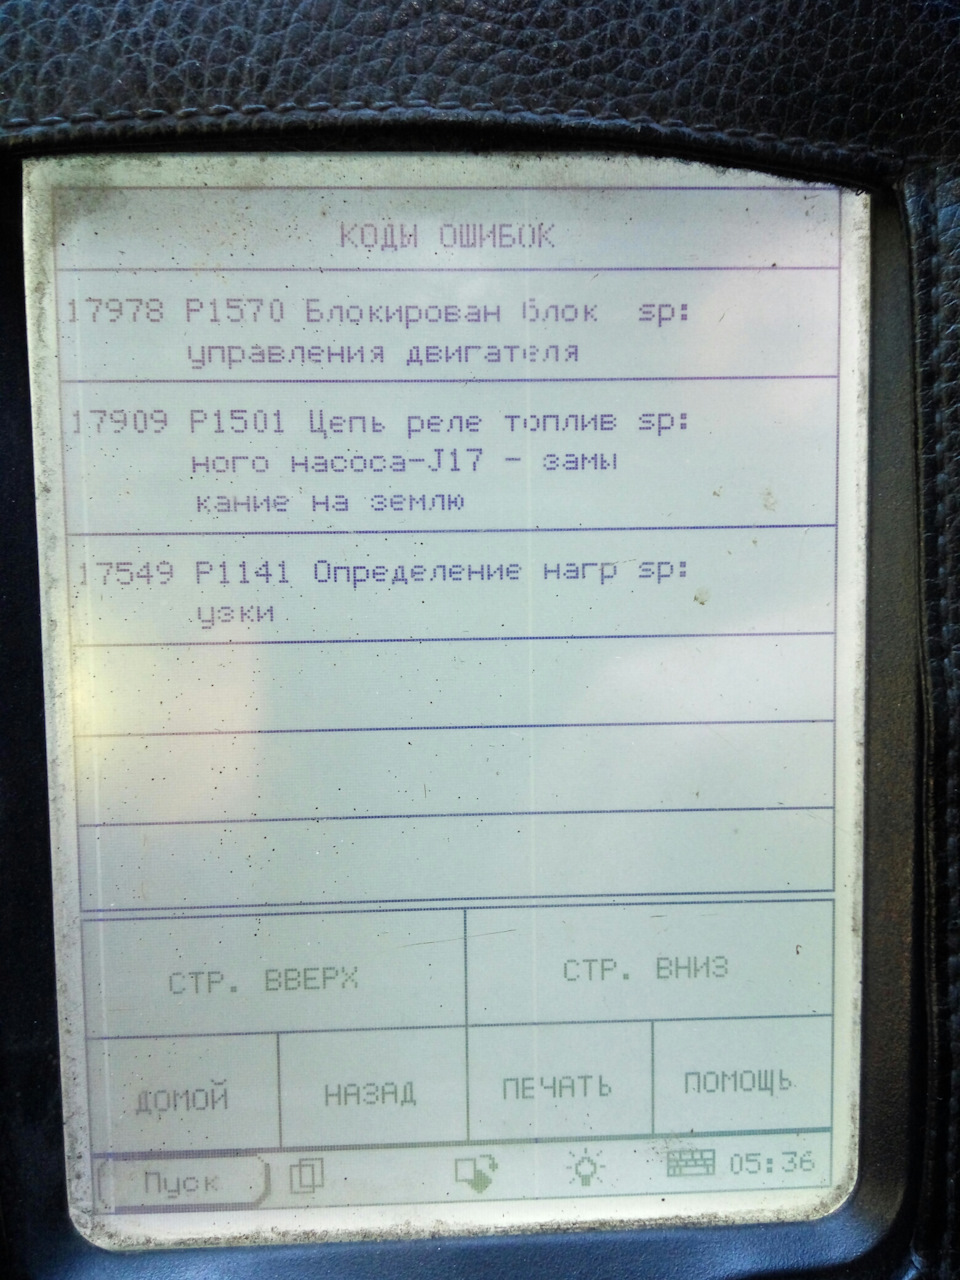 КОДЫ ОШИБОК
17978 P1570 Блокирован блок sp:
управления двигателя
17909 P1501 Цепь реле топлив sp:
ного насоса-J17 - замы
кание на землю
17549 P1141 Определение нагр sp:
узки
СТР. ВВЕРХ
СТР. ВНИЗ
ДОМОЙ
НАЗАД
ПЕЧАТЬ
ПОМОЩЬ
Пуск
05:36